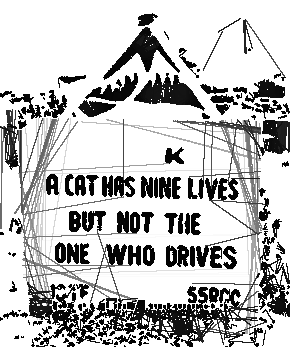 K
A CAT HAS NINE LIVES
BUT NOT THE
ONE WHO DRIVES